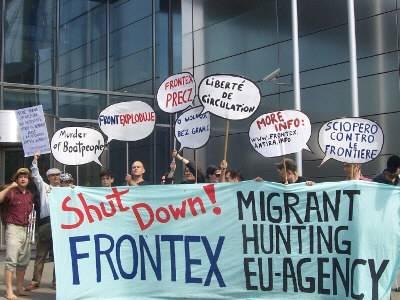 Murder
of Boatpeople
FRONTEXPLODUJE
FRONTEX
PRECZ
O WOLNOŚĆ
BEZ GRANIC
LIBERTÉ
DE
CIRCULATION
MORE
INFO:
www.FRONTEX.
ANTIRA.INFO
SCIOPERO
CONTRO
LE
FRONTIERE
Shut Down!
FRONTEX
MIGRANT
HUNTING
EU-AGENCY